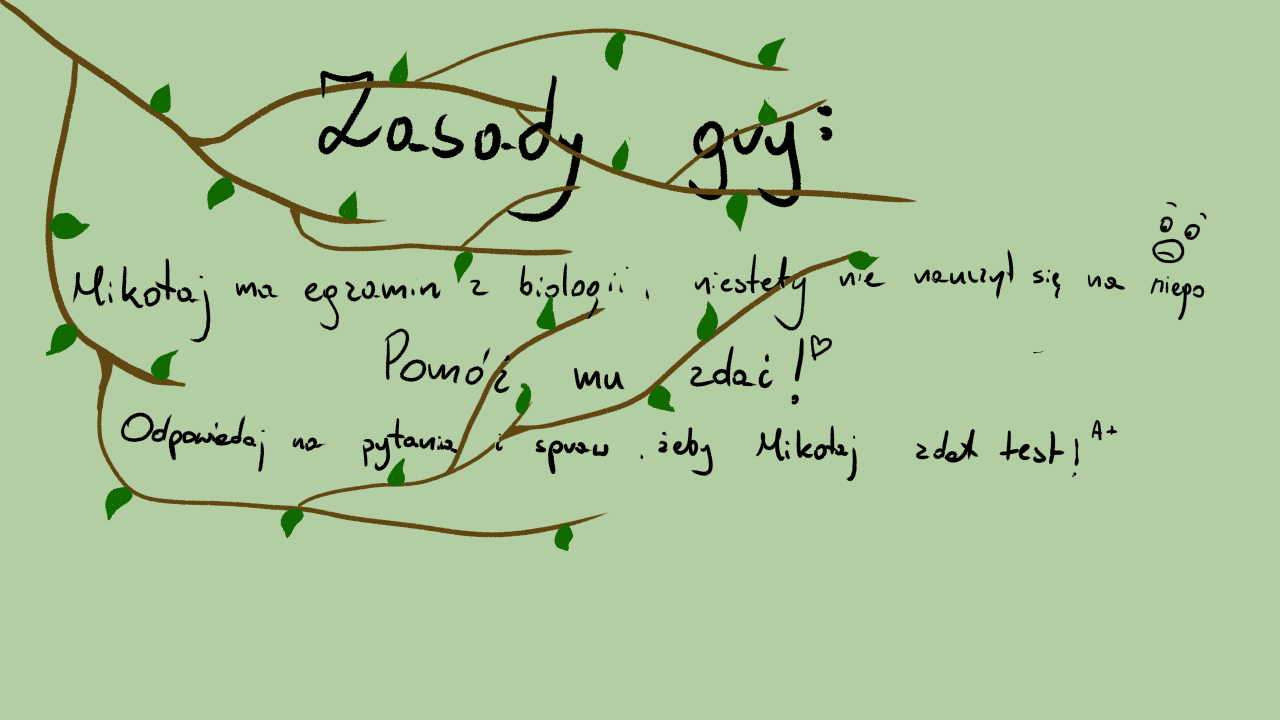 Zasady gry:
Mikołaj ma egzamin z biologii, niestety nie nauczył się na niego
Pomóż mu zdać!
Odpowiadaj na pytania i spraw, żeby Mikołaj zdał test! A+